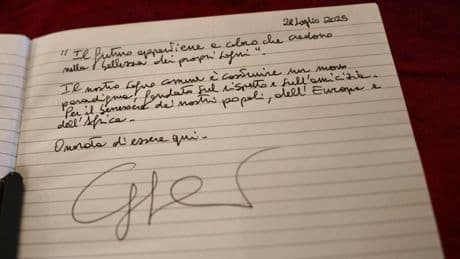 28 Luglio 2025
"Il futuro appartiene a coloro che credono
nella bellezza dei propri sogni"
Il nostro sogno comune è costruire un nuovo
paradigma, fondato sul rispetto e sull'amicizia.
Per il benessere dei nostri popoli, dell'Europa e
dell'Africa.
Onorata di essere qui.